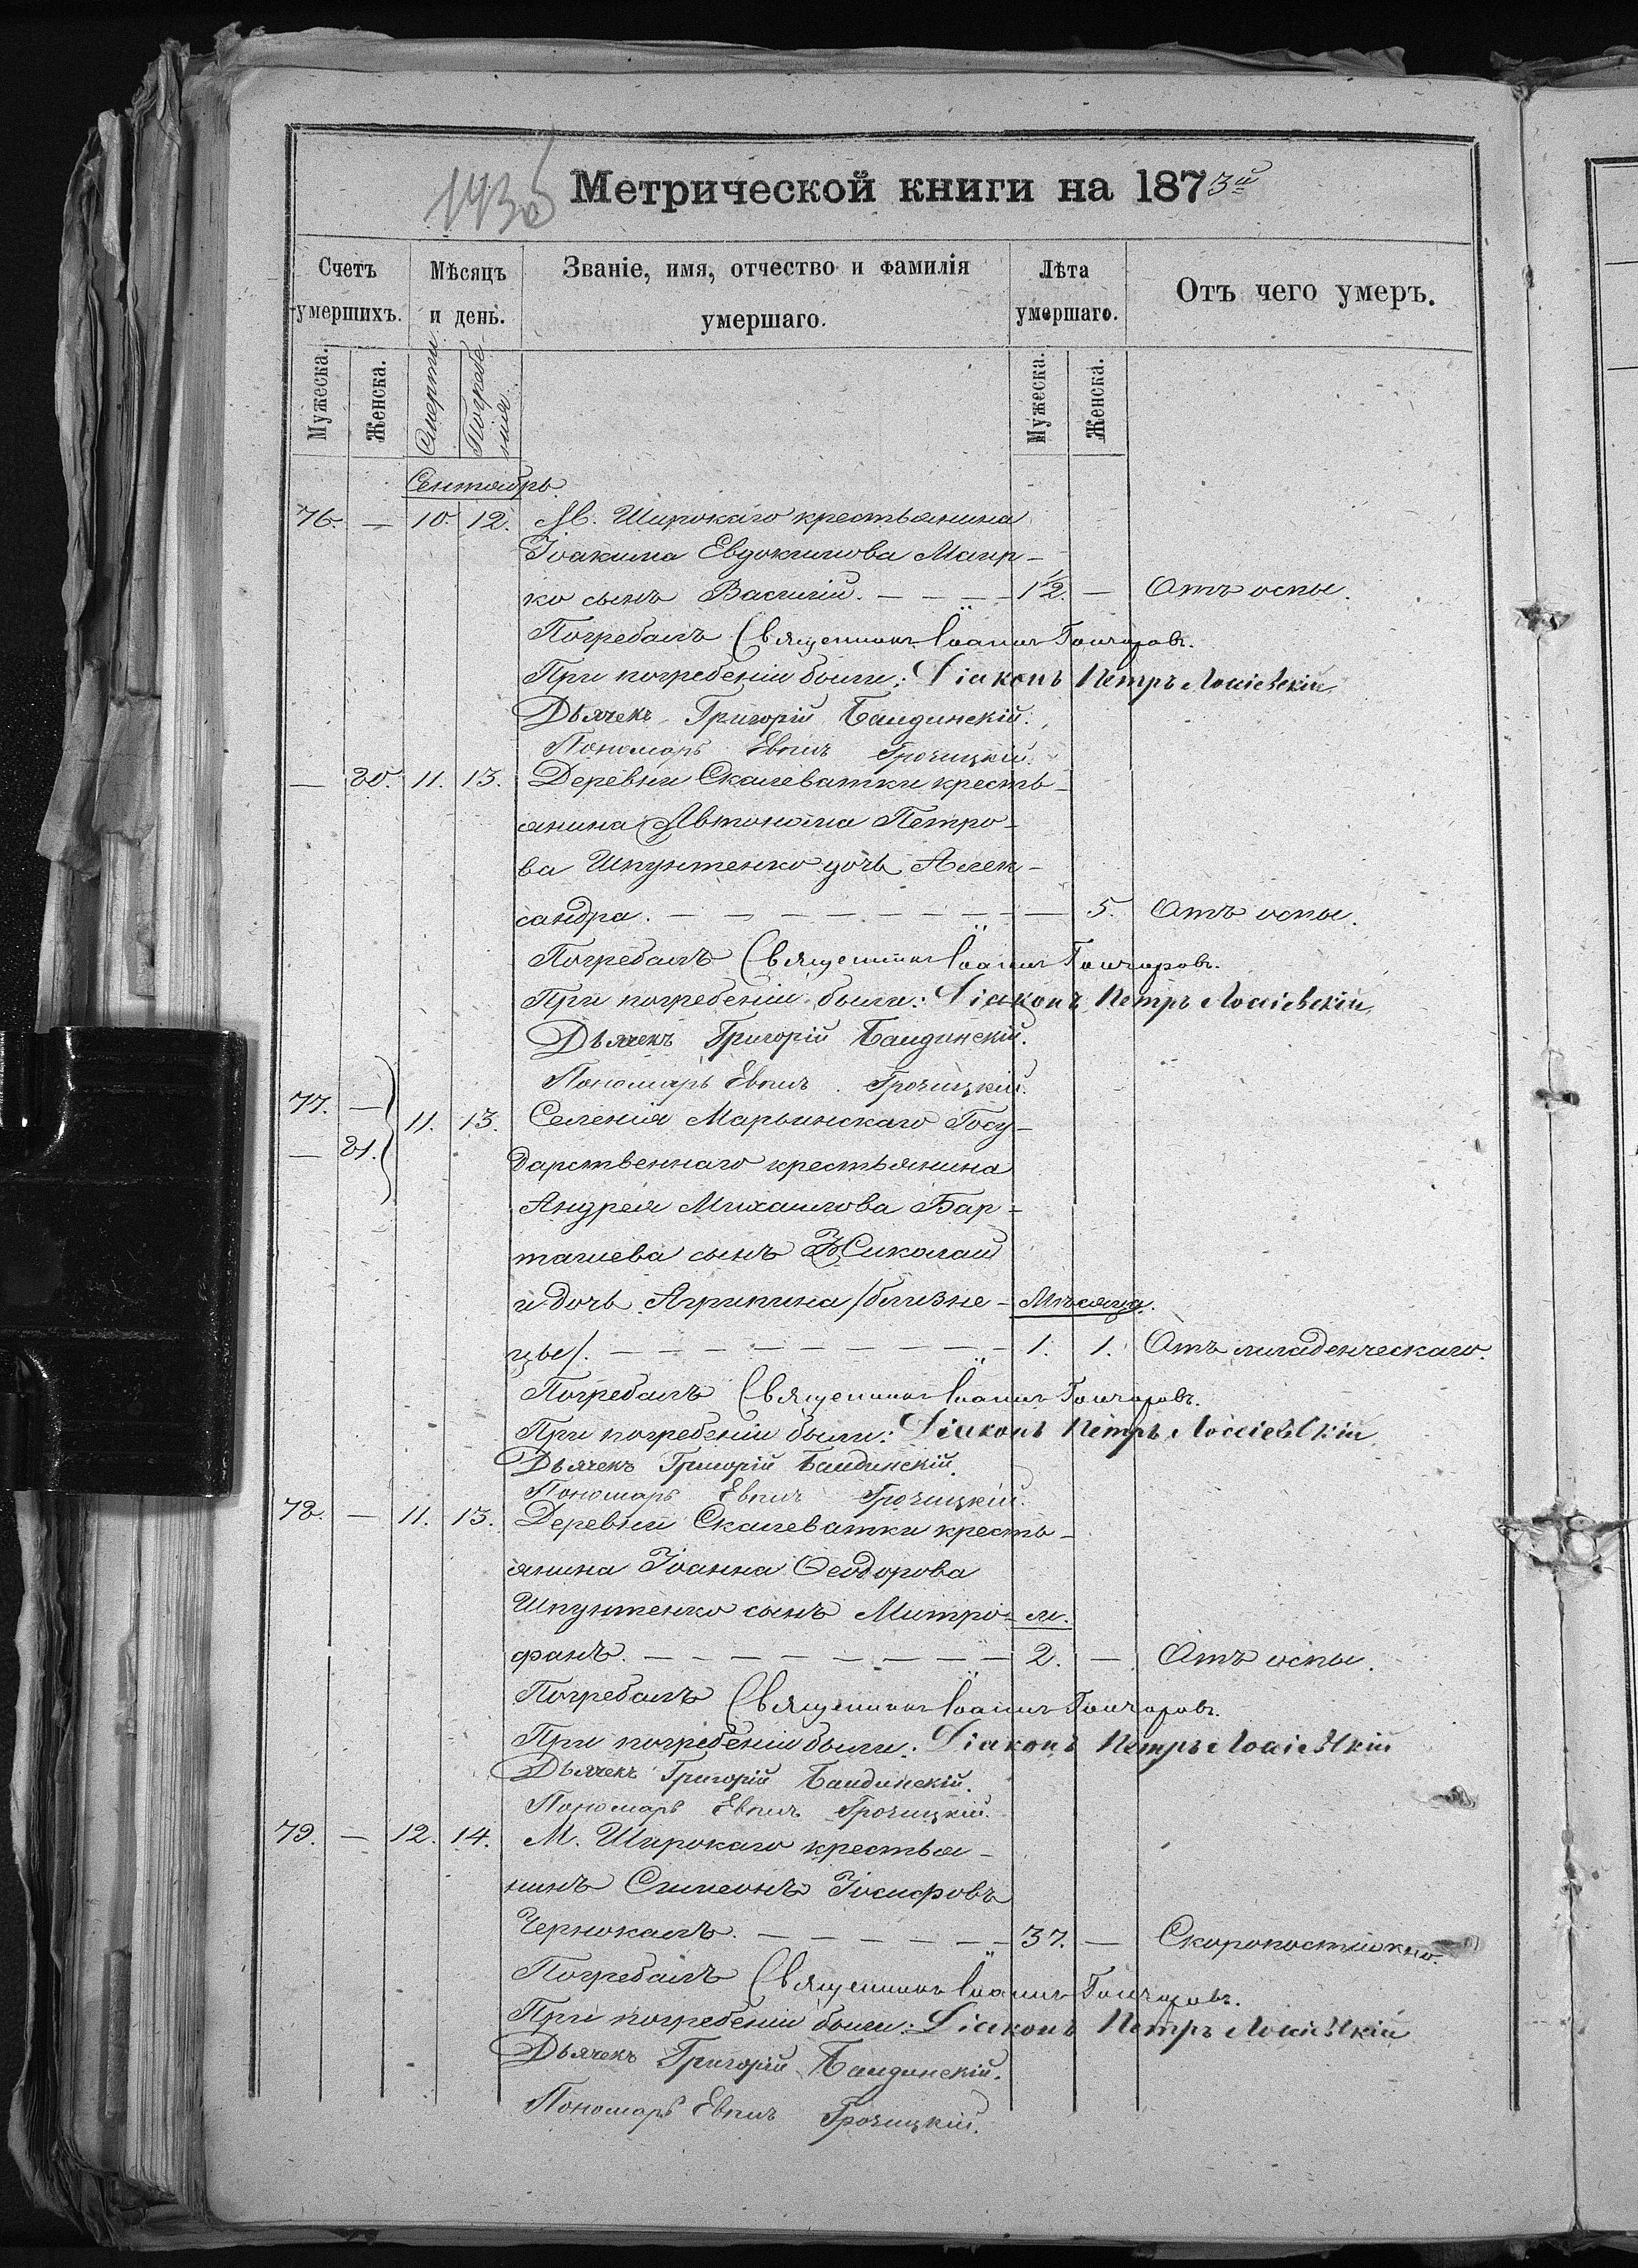 1436
Метрической книги на 1873й
Счетъ умершихъ.
Мѣсяцъ и день.
Званіе, имя, отчество и фамилія умершаго.
Лѣта умершаго.
Отъ чего умеръ.
Мужеска. Женска. Смерти Погребенія. Мужеска. Женска.
Сентябрь.
76. — 10. 12. М. Широкаго крестьянина
Іоакима Евдокимова Маир-
ко сынъ Василій. — — — 1/2. — Отъ оспы.
Погребалъ Священникъ Іоаннъ Гончаровъ.
При погребеніи были: Діаконъ Петръ Лосіевскій
Дьячекъ Григорій Бандинскій.
Пономарь Грочицкій.
— 20. 11. 13. Деревни Скалеватки кресть-
янина Автонома Петро-
ва Шпунтенко дочь Алек-
сандра. — — — — — — — — 5. Отъ оспы.
Погребалъ Священникъ Іоаннъ Гончаровъ.
При погребеніи были: Діаконъ Петръ Лосіевскій
Дьячекъ Григорій Бандинскій.
Пономарь Грочицкій.
77. —
— 21. 11. 13. Селенія Марьинскаго Госу-
дарственнаго крестьянина
Андрея Михаилова Бар-
ташева сынъ Николай
и дочь Агрипина /близне- Мѣсяца.
цы/. — — — — — — — — 1. 1. Отъ младенческаго.
Погребалъ Священникъ Іоаннъ Гончаровъ.
При погребеніи были: Діаконъ Петръ Лосіевскій
Дьячекъ Григорій Бандинскій.
Пономарь Грочицкій.
78. — 11. 13. Деревни Скалеватки кресть-
янина Іоанна Ѳеодорова
Шпунтенко сынъ Митро- м.
фанъ. — — — — — — — 2. — Отъ оспы.
Погребалъ Священникъ Іоаннъ Гончаровъ.
При погребеніи были: Діаконъ Петръ Лосіевскій
Дьячекъ Григорій Бандинскій.
Пономарь Грочицкій.
79. — 12. 14. М. Широкаго крестья-
нинъ Симеонъ Іосифовъ
Чернокалъ. — — — — — 37. — Скоропостижно.
Погребалъ Священникъ Іоаннъ Гончаровъ.
При погребеніи были: Діаконъ Петръ Лосіевскій
Дьячекъ Григорій Бандинскій.
Пономарь Грочицкій.